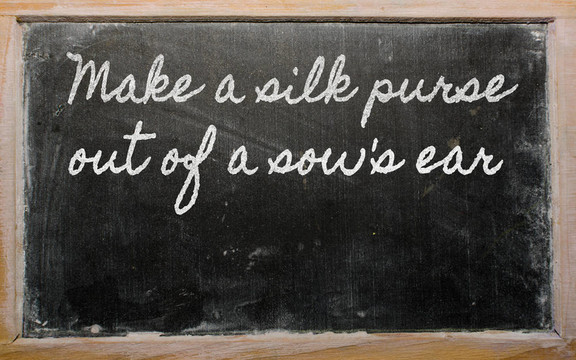 Make a silk purse
out of a sow's ear